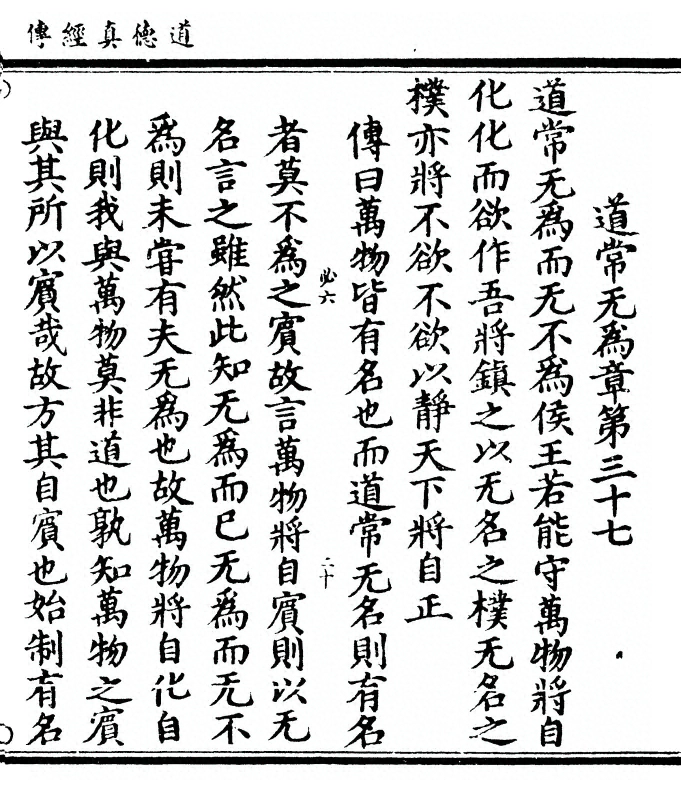 道德真經傳
道常无為章第三十七
道常无為而无不為侯王若能守萬物將自
化化而欲作吾將鎮之以无名之樸无名之
樸亦將不欲不欲以靜天下將自正
傳曰萬物皆有名也而道常无名則有名
必六
二十
者莫不為之賓故言萬物將自賓則以无
名言之雖然此知无為而已无為而无不
為則未甞有夫无為也故萬物將自化自
化則我與萬物莫非道也孰知萬物之賓
與其所以賓哉故方其自賓也始制有名